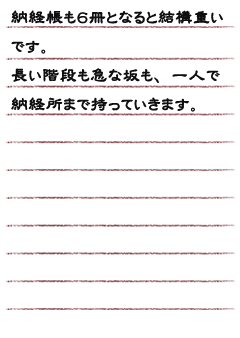 納経帳も６冊となると結構重い
です。
長い階段も急な坂も、一人で
納経所まで持っていきます。